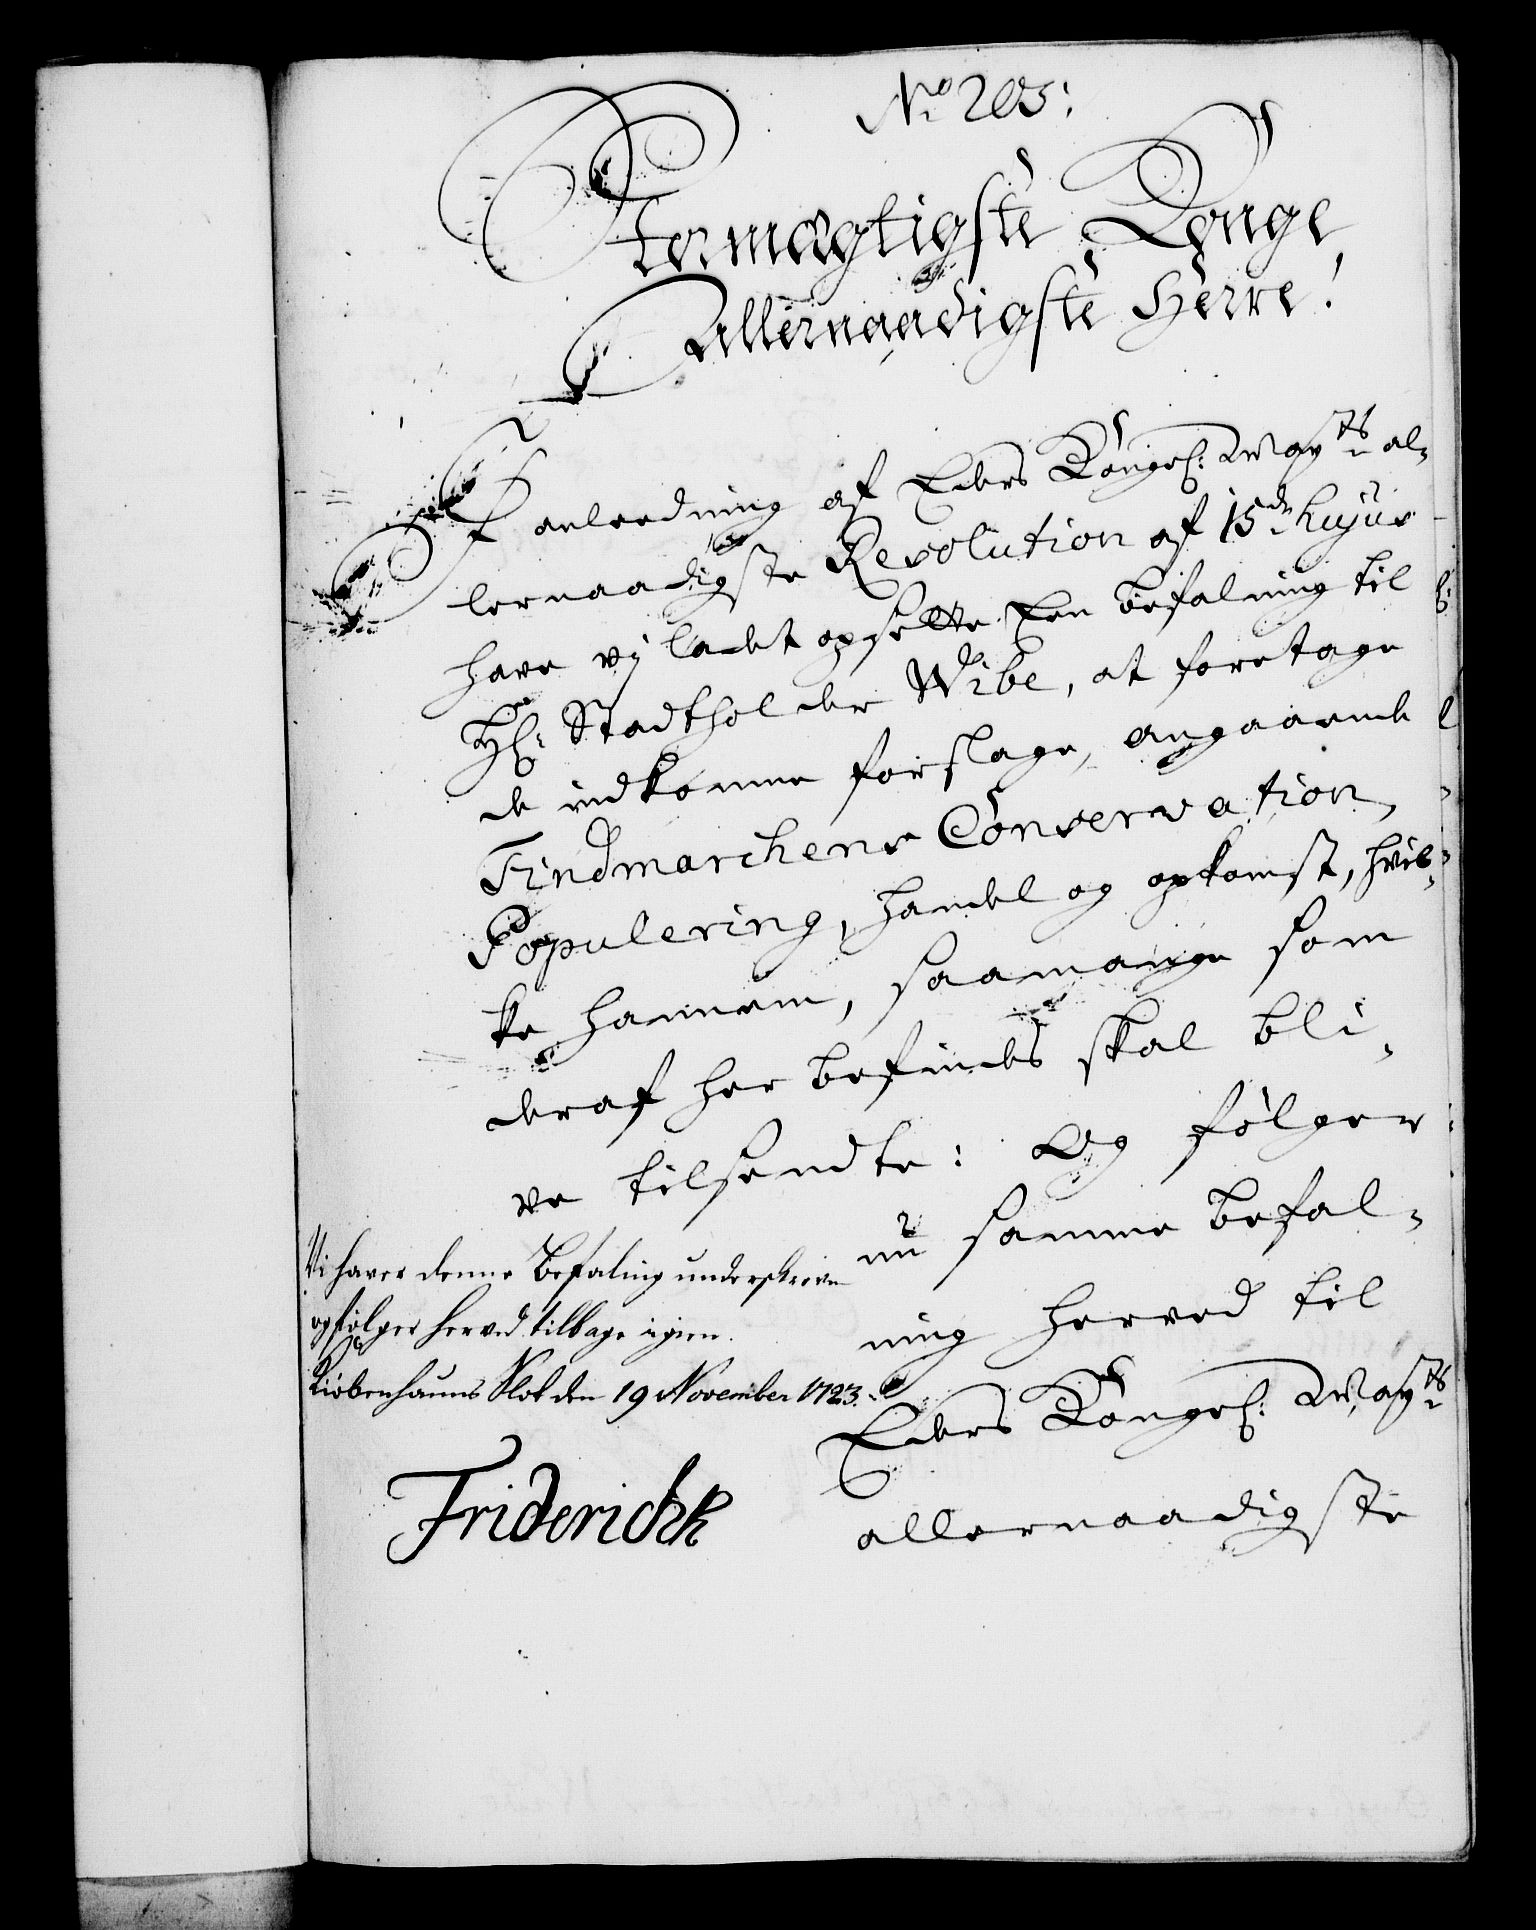 No 205:
Stormægtigste Konge,
Allernaadigste Herre!
I anledning af Eders Kongel: Mayts al-
lernaadigste Resolution af 15de hujus
have vj ladet opsette Een befalning til
Hr: Stadtholder Wibe, at foretage
de indkomne forslage, angaaende
Findmarchens Conservation,
Populering, handel og opkomst, hvil-
ke hannem, saamange som
deraf her befindes skal bli-
ve tilsendte: Og følger
nu samme befal-
ning herved til
Eders Kongel: Mayts
allernaadigste
Vi haver denne Befaling underskreven
og følger herved tilbage igien.
Kiøbenhauns Slot den 19 November 1723.
Friderich R